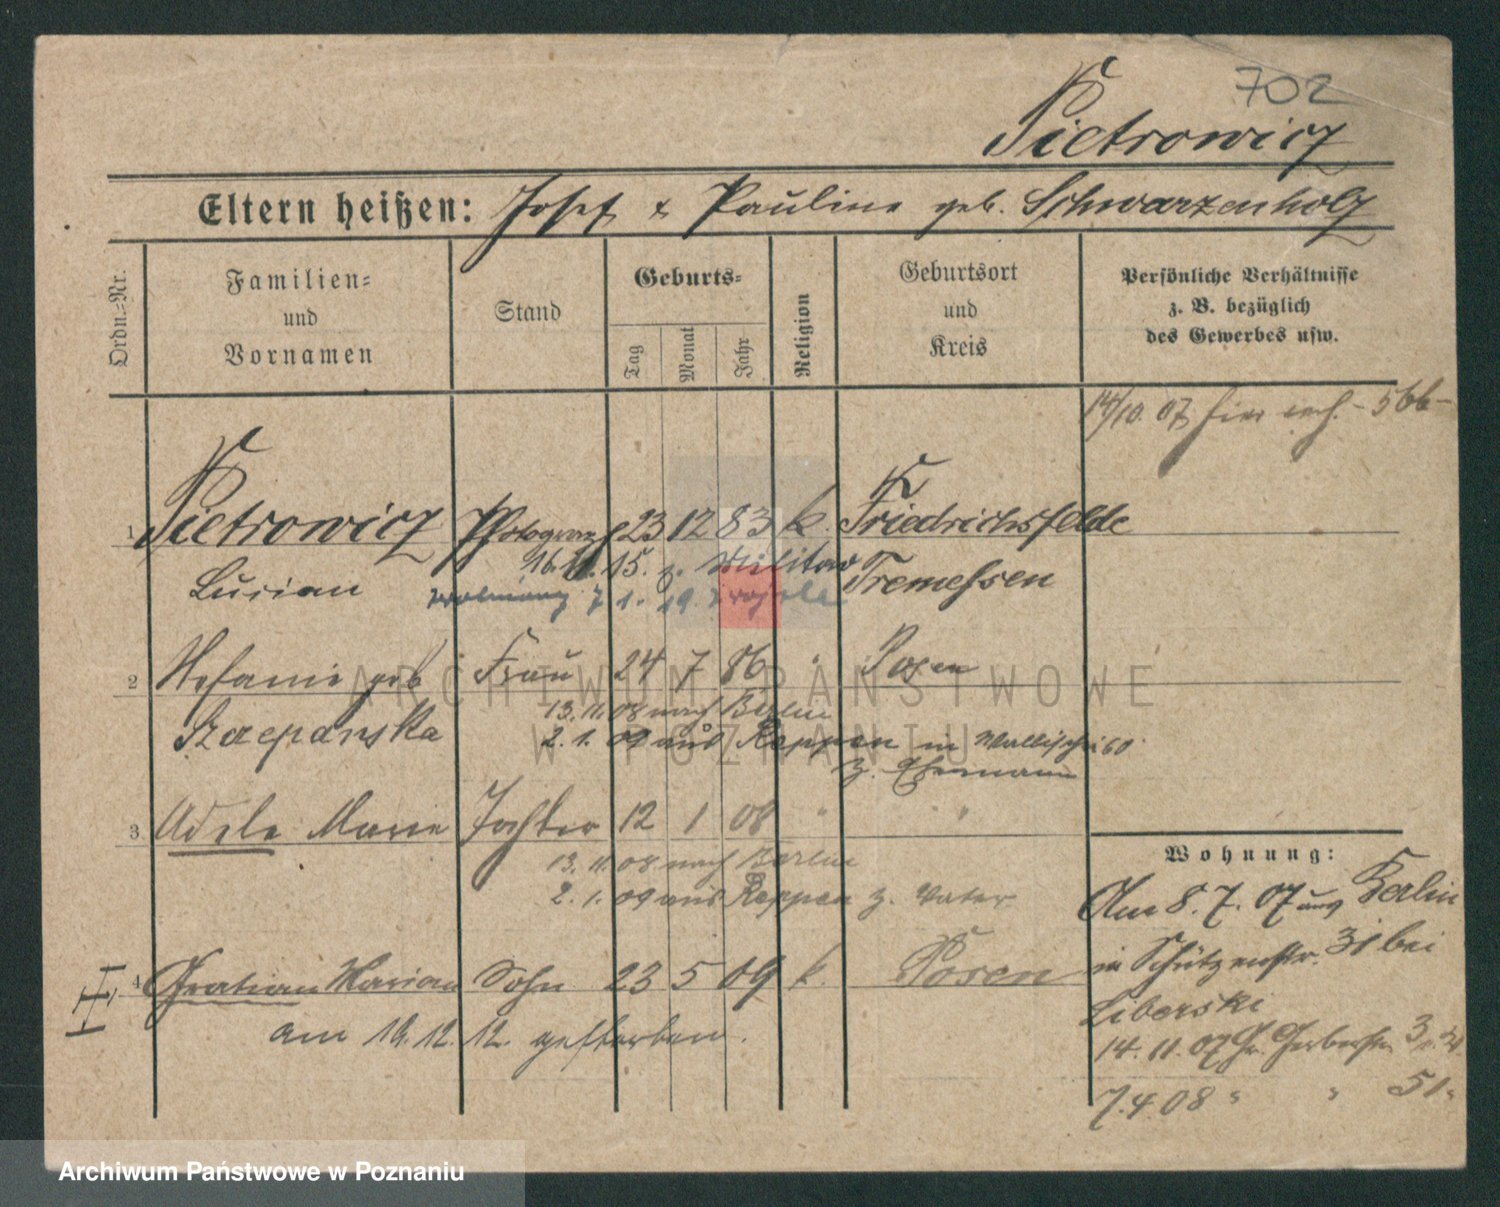 702
Pietrowicz
Eltern heißen: Josef & Pauline geb. Schwarzenholz
Ordn.-Nr.
Familien-
und
Vornamen
Stand
Geburts-
Tag
Monat
Jahr
Religion
Geburtsort
und
Kreis
Persönliche Verhältnisse
z. B. bezüglich
des Gewerbes usw.
14/10. 07 hier verh. - 566 -
1 Pietrowicz Photograph 23 12 83 k. Friedrichsfelde
Lucian 16. 15. z. Militär Tremessen
7 1. 19.
2 Stefanie geb Frau 24 7 86 " Posen
13. 11. 08 nach Berlin
Szczepanska 2. 1. 09 aus Reppen in Wallischei 60
z. Ehemann
3 Adele Marie Tochter 12 1 08 " "
13. 11. 08 nach Berlin
2. 1. 09 aus Reppen z. Vater
4 Gratian Marian Sohn 23 5 09 k. Posen
am 12. 12. gestorben.
Wohnung:
Am 8. 7. 07 aus Berlin
in Schützenstr. 31 bei
Liberski
14. 11. 07 Gr. Gerberstr. 3
7. 4. 08 " " 51.
ARCHIWUM PAŃSTWOWE
W POZNANIU
Archiwum Państwowe w Poznaniu